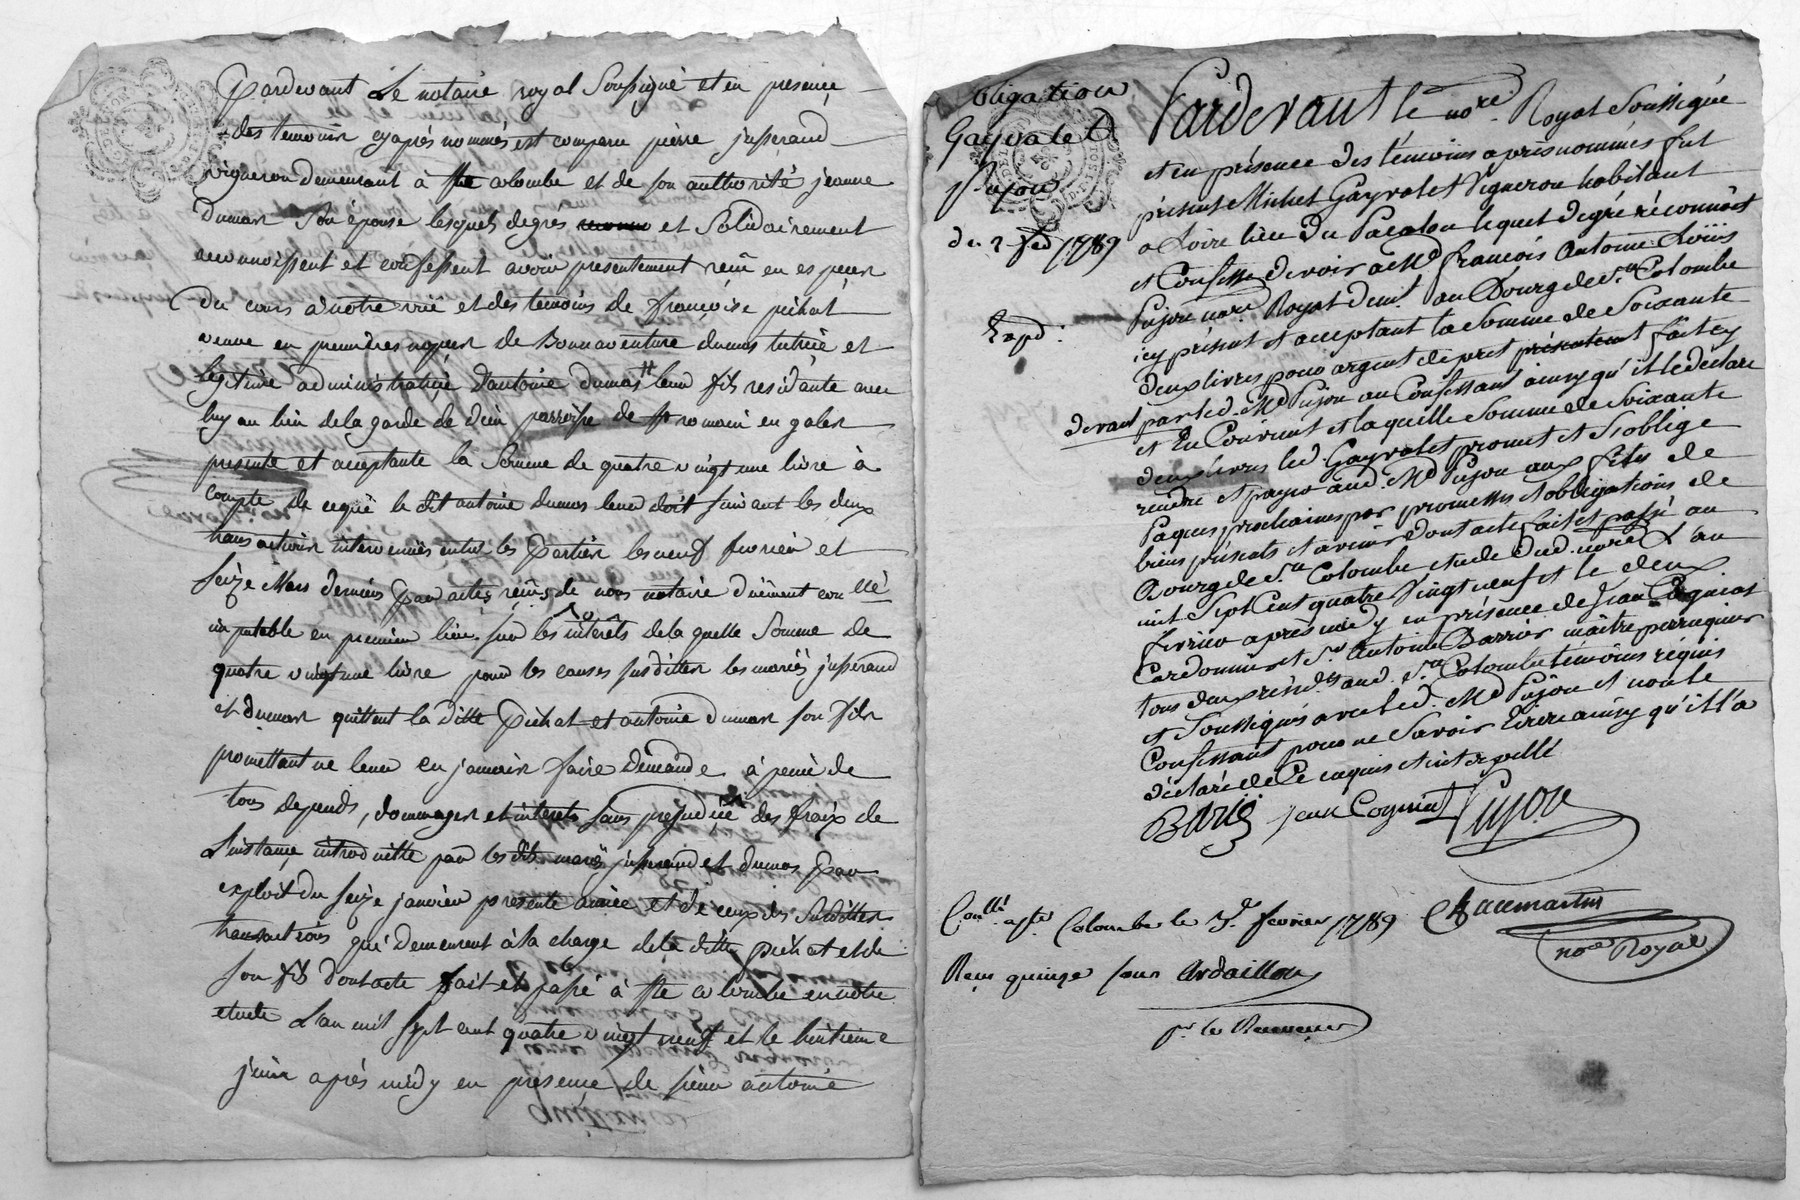 Pardevant Le notaire royal Soussigné et en presence
des temoins cyaprès nommés est comparu pierre jusserand
vigneron demeurant à Ste colombe et de son authorité jeanne
dumas son épouse lesquels de grés et Solidairement
reconnoissent et confessent avoir presentement reçû en especes
du cours a notre vuë et des temoins de françoise pichat
veuve en premières nopces de Bonnaventure dumas tutrice et
legitime administratrice d'antoine dumas leur fils residante avec
luy au lieu de la garde de Dieu parroisse de St romain en galer
presente et aceptante la Somme de quatre vingt une livre à
compte de ce que le dit antoine dumas leur doit suivant les deux
transactions intervenües entre les Parties les neuf fevrier et
seize Mars derniers par actes reçus de nous notaire duëment conllé
imputable en premier lieu sur les intérêts de la quelle Somme de
quatre vingt une livre pour les causes susdittes les mariés jusserand
et dumas quittent la ditte Pichat et antoine dumas son fils
promettant ne leur en jamais faire demande à peine de
tous depends, dommages et interets sans prejudice des fraix de
L'instance introduitte par les dits mariés jusserand et dumas par
exploit du seize janvier presente année et de ceux des susdittes
transactions qui demeurent à la charge de la ditte pichat et de
son fils dont acte fait et passé à Ste colombe en notre
etude L'an mil sept cent quatre vingt neuf et le huitieme
juin après midy en presence de sieur antoine
obligation
Gayvalet
Pujou
du 2 fed 1789
Expd:
Pardevant le nore. Royal Soussigné
et en présence des témoins aprés nommés fut
présent Michel Gayvalet Vigneron habitant
a Loire lieu du Pacalon lequel de gré réconnoit
et Confesse devoir a Md francois Antoine Loüis
Pujou nore Royal demt au Bourg de Ste Colombe
icy présent et acceptant la Somme de Soixante
deux livres pour argent de pret présentement fait cy
devant par led. Md Pujou au Confessant ainsy qu'il le déclare
et En Convient et laquelle Somme de Soixante
deux livres led. Gayvalet promet et S'oblige
rendre et payer aud. Md Pujou aux fêtes de
Paques prochaines par promesses et obligations de
biens présents et avenir dont acte fait et passé au
Bourg de Ste Colombe etude dud. nore L'an
mil Sept Cent quatre Vingt neuf et le deux
fevrier après midy en présence de Jean Cognat
Cordonnier et Sr Antoine Barrier maître perruquier
tous deux résidts aud. Ste Colombe témoins réquis
et Soussignés avec led. Md Pujou et non le
Confessant pour ne Savoir Ecrire ainsy qu'il l'a
déclaré de Ce enquis et interpellé
Barié jean Cognat Pujou
Conllé a Ste Colombe le 3e. fevrier 1789 Chaumartin
nore Royal
Reçu quinze sous Ardaillon
pr. le Receveur